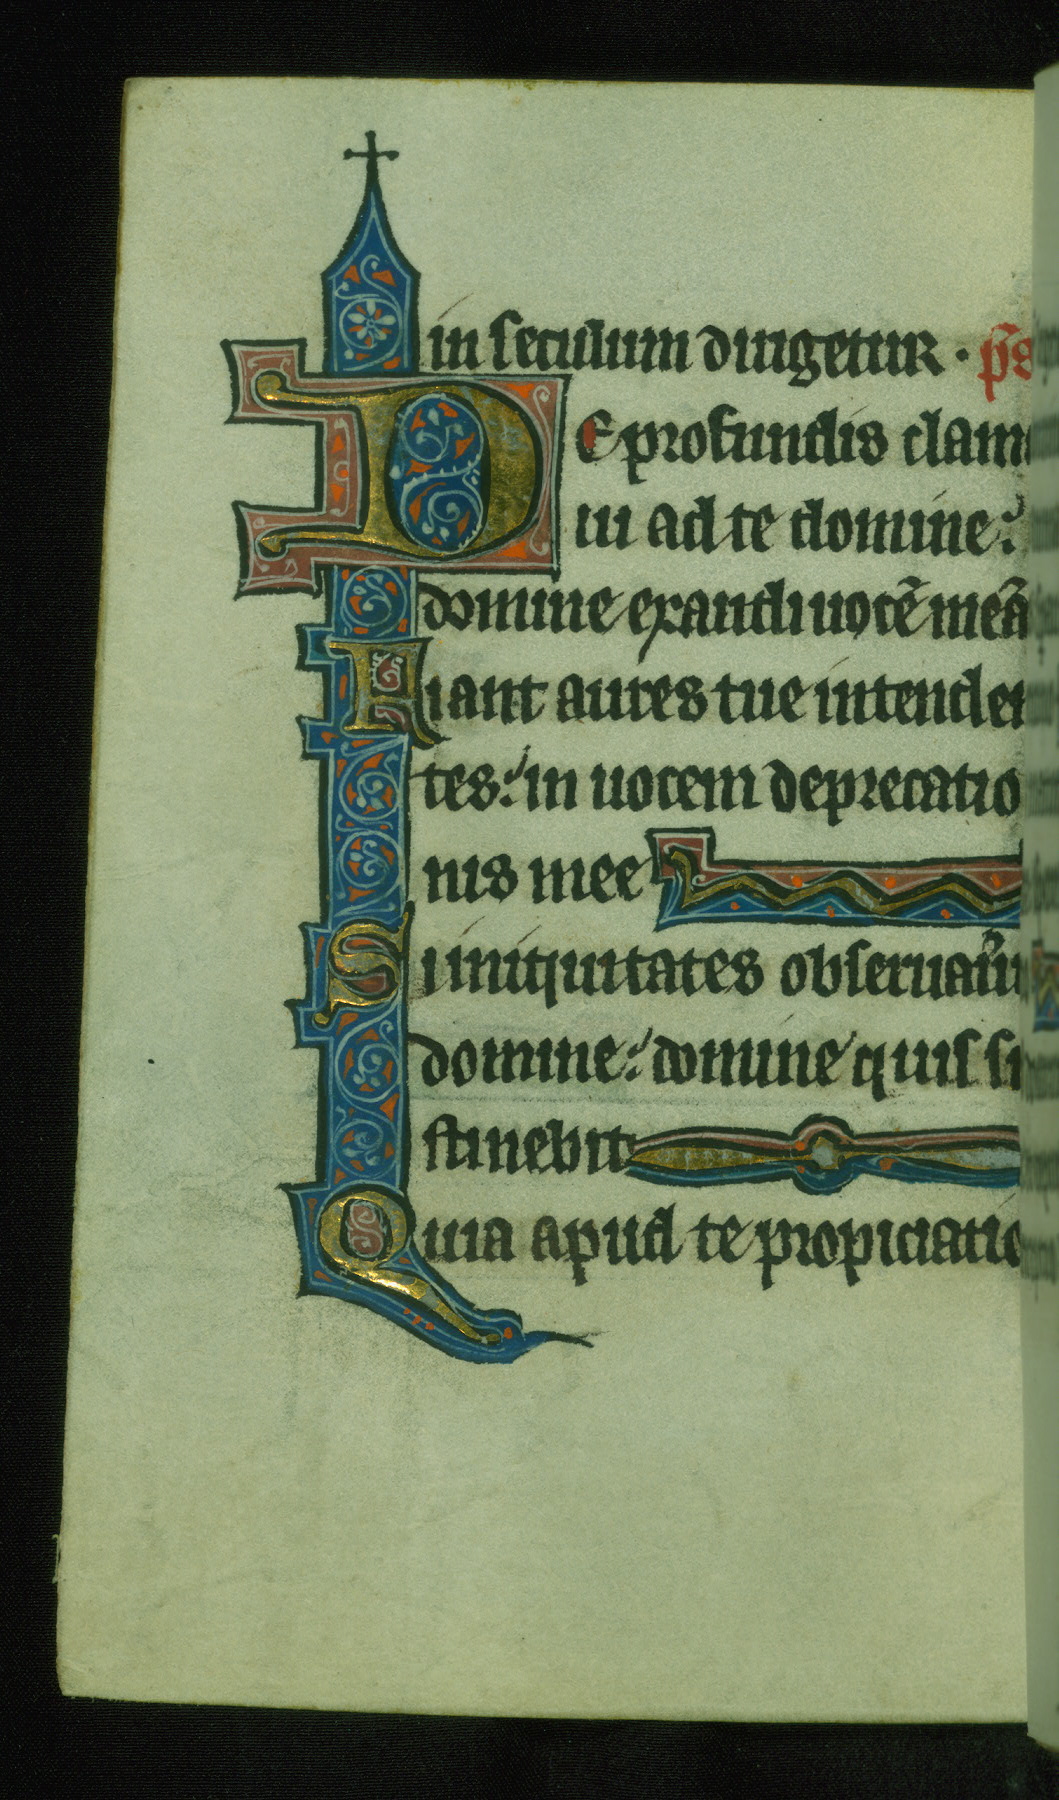 in seculum dirigetur · p̃s
De profundis clama
ui ad te domine:
domine exaudi uocẽ meã
Fiant aures tue intenden
tes: in uocem deprecatio
nis mee
Si iniquitates obseruaũi
domine: domine quis su
stinebit
Quia apud te propiciatio